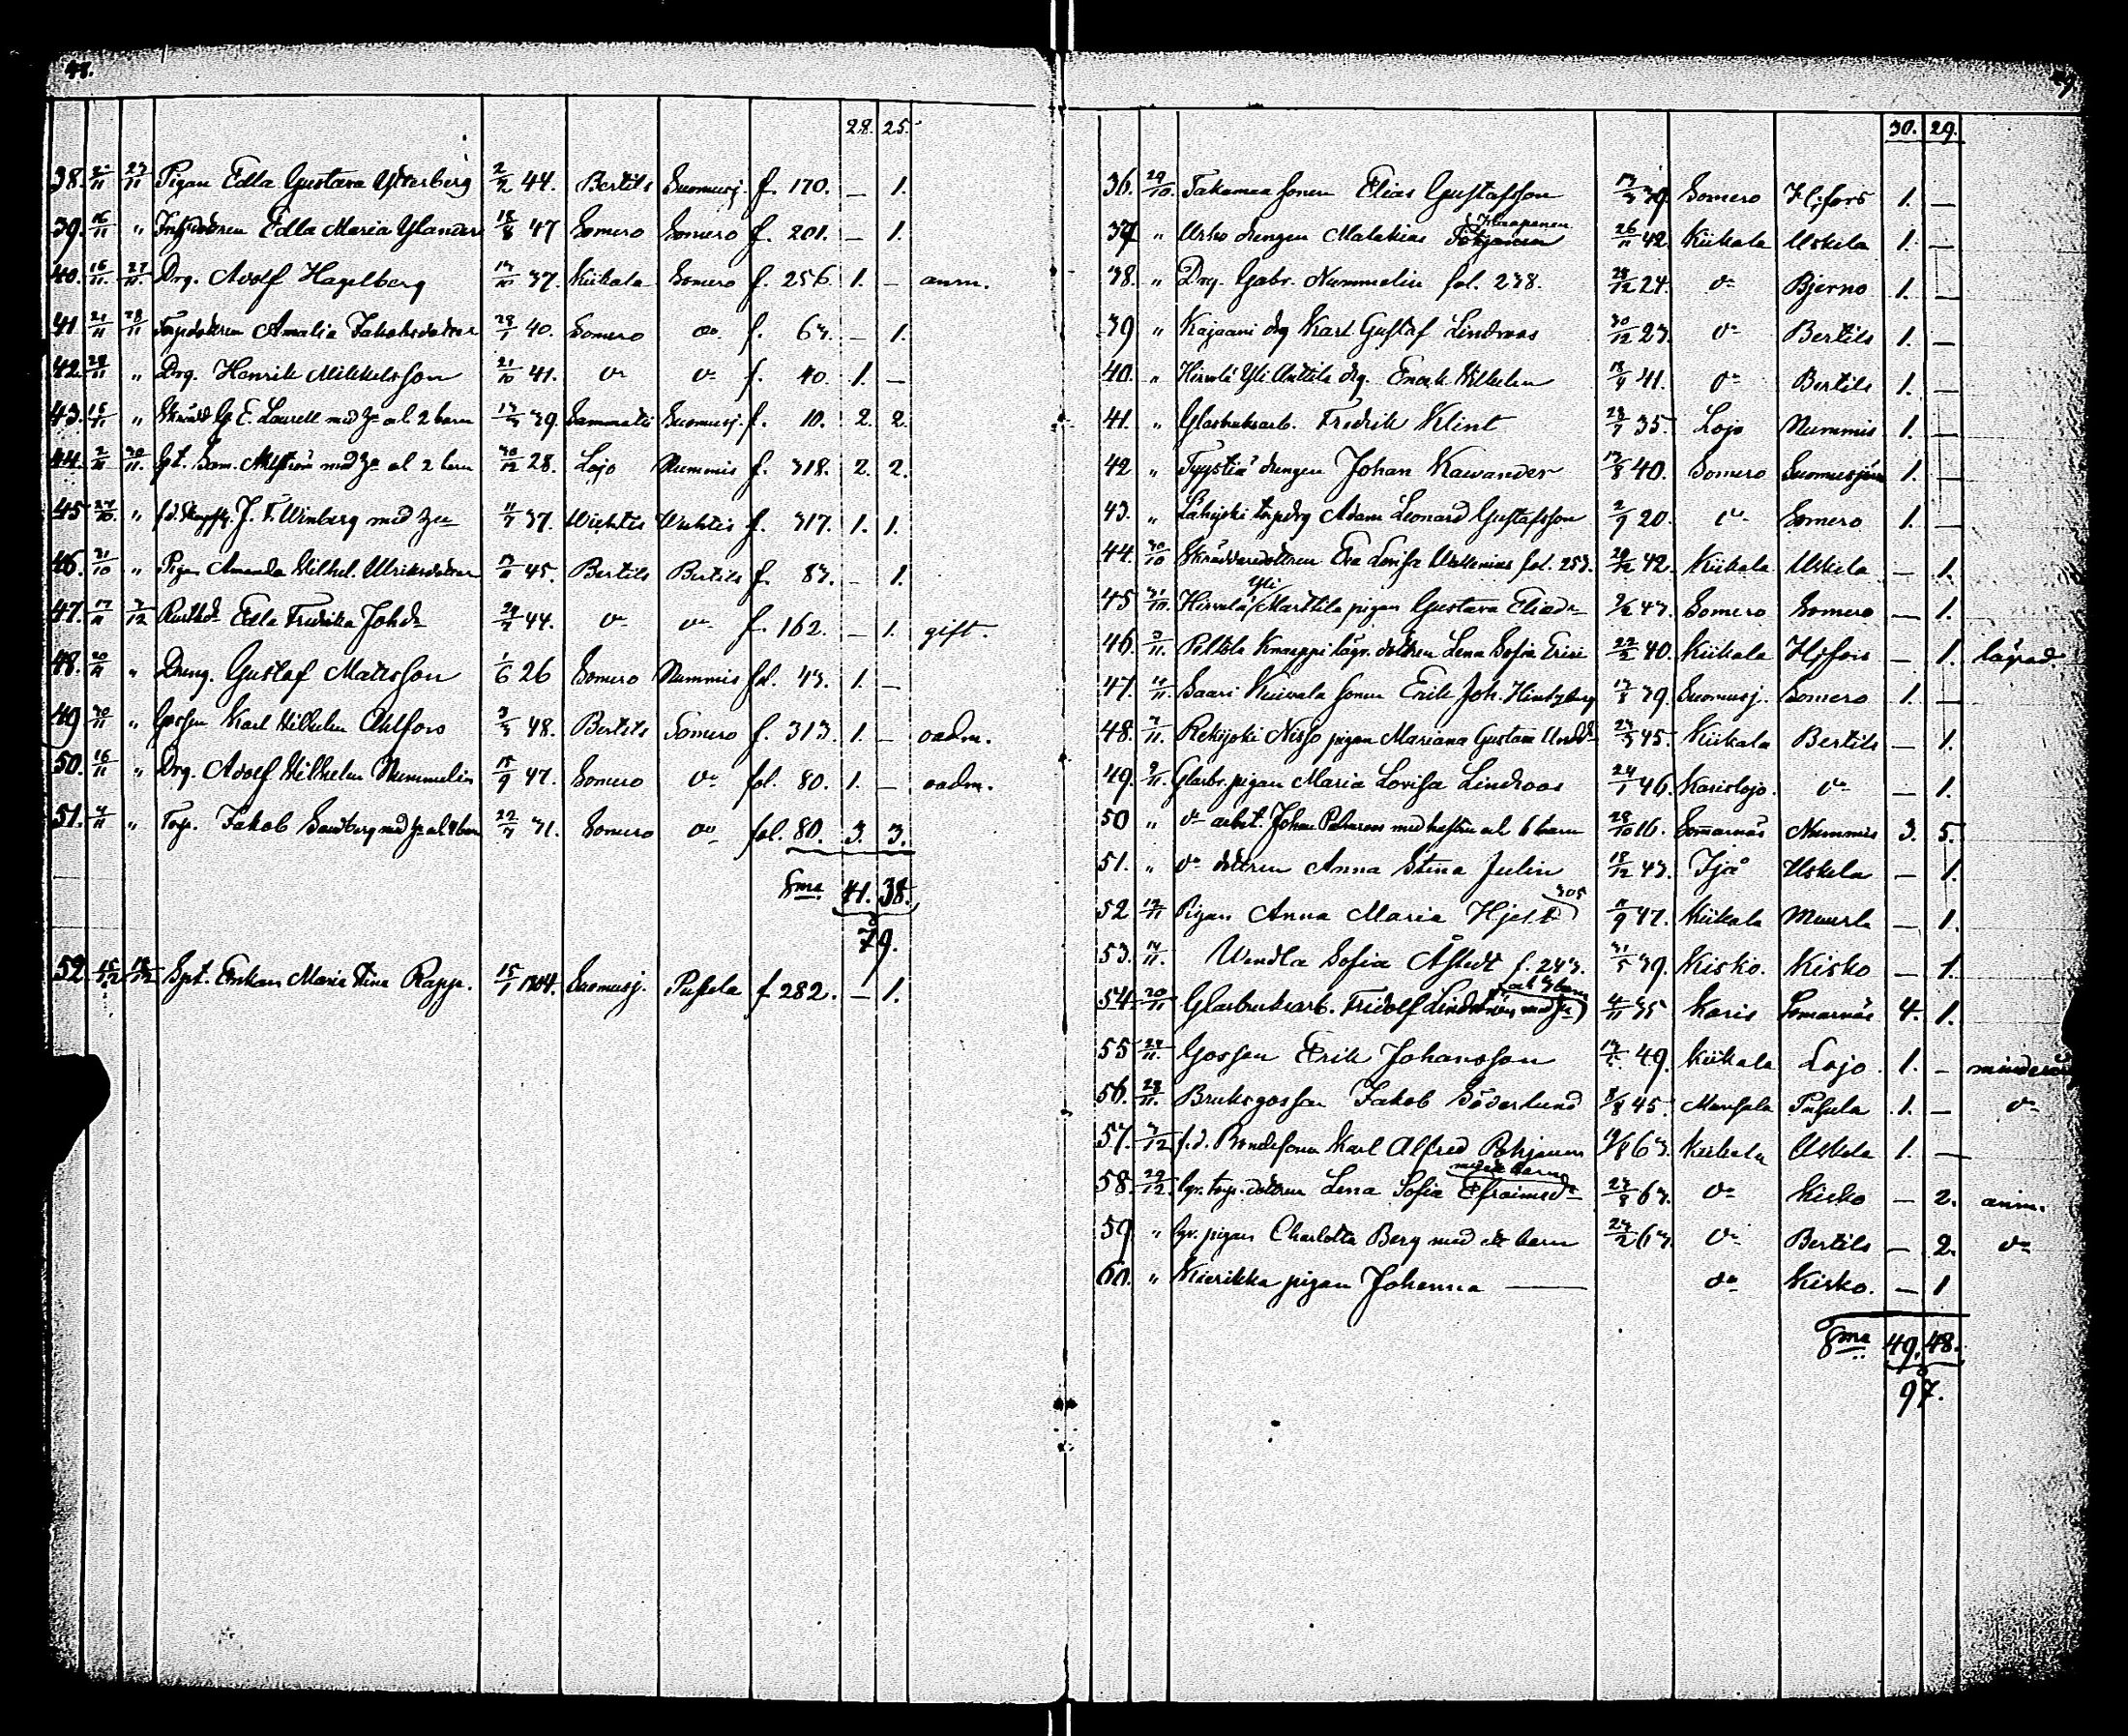 28. 25.
38. 22/11 23/11 Pigan Edla Gustava Österberg 2/2 44. Bertils Suomusj. f. 170. — 1.
39. 16/11 " Edla Maria Ylander 18/8 47 Somero Somero f. 201. — 1.
40. 16/11. 27/11. Drg. Adolf Hagelberg 13/10 37. Kiikala Somero f. 256. 1. — anm.
41. 21/11 28/11 Torpdottren Amalia Jakobsdotter 29/1 40. Somero do f. 63. — 1.
42. 28/11 " Drg. Henrik Mikkelsson 21/10 41. do do f. 40. 1. —
43. " Skrädd. G. E. Laurell med Hu och 2 barn 13/3 39. Sammatti Suomusj. f. 10. 2. 2.
44. 2/11 30/11. Gt. Sam. Ahlström med Hu och 2 barn 30/12 28. Lojo Nummis f. 318. 2. 2.
45. 27/10. " J. F. Winberg med Hu 37. Wichtis Wichtis f. 317. 1. 1.
46. 31/10 " Pigan Amanda Wilhel. Ulriksdotter 45. Bertils Bertils f. 83. — 1.
47. 17/11 3/12 Edla Fredrika Johdr 44. do do f. 162. — 1. gift.
48. 20/11 " Dreng. Gustaf Mattsson 1/6 26 Somero Nummis fol. 43. 1. —
49 30/11 " Gossen Karl Wilhelm Ahlfors 3/3 48. Bertils Somero f. 313. 1. — oadm.
50. 16/11 " Drg. Adolf Wilhelm Nummelin 15/9 47. Somero do fol. 80. 1. — oadm.
51. 4/11 " Torp. Jakob Sandberg med Hu och 4 barn 22/7 31. Somero do fol. 80. 3. 3.
Sma 41. 38.
79.
52. 15/12 18/12 Spt. Enkan Maria Stina Rapp. 15/1 1804. Suomusj. Pusula f. 282. — 1.
30. 29.
36. 29/10. Takamaa sonen Elias Gustafsson 13/3 39. Somero H:fors 1. —
37 " Urho drengen Malakias Pohjanen Haapanen 26/11 42. Kiikala Uskela 1. —
38. " Drg. Gabr. Nummelin fol. 238. 28/12 24. do Bjerno 1. —
39 " Kajaani drg Karl Gustaf Lindroos 30/12 23. do Bertils 1. —
40. " Hirvelä Yli Anttila drg. Enok Wilhelm 18/4 41. do Bertils 1. —
41. " Glasbruksarb. Fredrik Klint 28/7 35. Lojo Nummis 1. —
42 " Tyystiä drengen Johan Kawander 13/8 40. Somero Suomusjärvi 1. —
43. " Lahijoki torpdrg Adam Leonard Gustafsson 2/9 20. do Somero 1. —
44. 30/10 Skräddaredottren Eva Lovisa Wallenius fol. 253. 42. Kiikala Uskela — 1.
45 31/10. Hirvelä Yli Marttila pigan Gustava Eliadr 43. Somero Somero — 1.
46. 3/11. Peltola Knaappi lägr. dottren Lena Sofia Erici 22/2 40. Kiikala H:fors — 1. lägrad.
47. Saari Kuivala sonen Erik Joh. Hindsberg 13/8 39. Suomusj. Somero 1. —
48. 7/11. Rekijoki Nisso pigan Mariana Gustava 23/3 45. Kiikala Bertils — 1.
49. 9/11. Glasbr. pigan Maria Lovisa Lindroos 24/1 46. Karislojo. do — 1.
50 " do arbet. Johan med hustru och 6 barn 28/10 16. Somarnäs Nummis 3. 5.
51. " do dottren Anna Stina Julin 18/12 43. Ijo Uskela — 1.
52 13/11 Pigan Anna Maria Hjelt 305 47. Kiikala Muurla — 1.
53. 14/11. Wendla Sofia Åstedt f. 243. 31/5 39. Kisko. Kisko — 1.
54. 20/11 Glasbruksarb. Fridolf Lindström med Hu och 3 barn 4/11 35 Karis Somarnäs 4. 1.
55 24/11. Gossen Erik Johansson 49. Kiikala Lojo 1. — minderår
56. 28/11. Bruksgossen Jakob Söderlund 45. Pusula 1. — do
57. 3/12 f.d. Bondesonen Karl Alfred Pohjanen 63. Kiikala Uskela 1. —
58. 29/12. lgr. torp. dottren Lena Sofia Efraimsdr med ett barn 27/8 63. do Kisko — 2. anm.
59 " lgr. pigan Charlotta Berg med ett barn 63. do Bertils — 2. do
60. " Kierikka pigan Johanna — do Kisko. — 1
Sma 49. 48.
97.